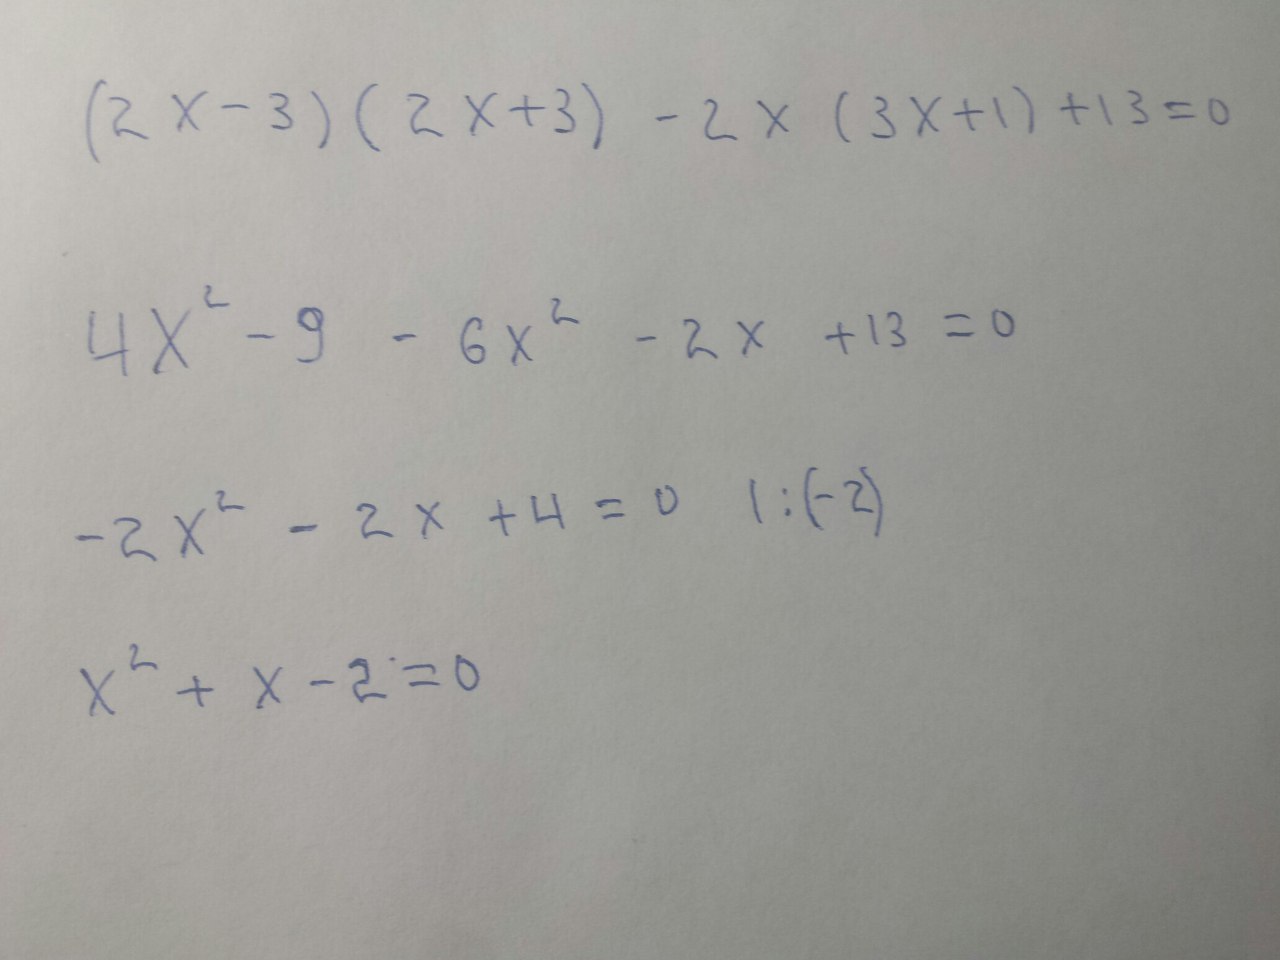 (2x-3)(2x+3) -2x (3x+1)+13=0
4x² -9 - 6x² -2x +13 =0
-2x² - 2x +4 = 0 |:(-2)
x² + x -2 =0